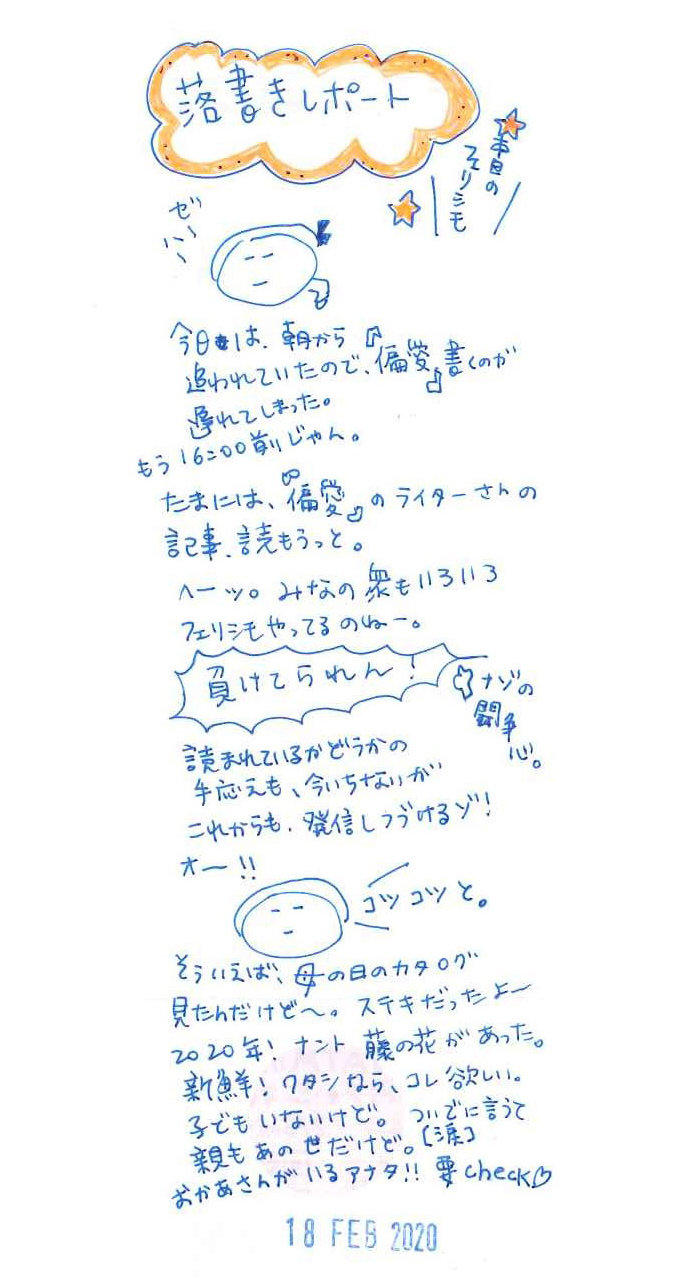 落書きレポート
本日の
フェリシモ
ゼハー
今日は、朝から
追われていたので、『偏愛』書くのが
遅れてしまった。
もう16:00前じゃん。
たまには、『偏愛』のライターさんの
記事、読もうっと。
へーッ。みなの衆もいろいろ
フェリシモやってるのねー。
負けてられん!
ナゾの
闘争
心。
読まれているかどうかの
手応えも、今いちないが
これからも、発信しつづけるゾ!
オー!!
コツコツと。
そういえば、母の日のカタログ
見たんだけど〜。ステキだったよ〜
2020年!ナント藤の花があった。
新鮮!ワタシなら、コレ欲しい。
子どもいないけど。ついでに言うて
親もあの世だけど。[涙]
おかあさんがいるアナタ!!要check♡
18 FEB 2020